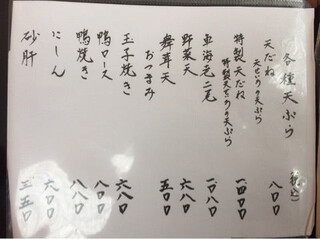 各種天ぷら (税込)
天だね 八〇〇
天せいろの天ぷら
特製天だね 一四〇〇
特製天せいろの天ぷら
車海老二尾 一〇八〇
野菜天 六八〇
舞茸天 五〇〇
おつまみ
玉子焼き 六八〇
鴨ロース 八〇〇
鴨焼き 八八〇
にしん 六〇〇
砂肝 三五〇